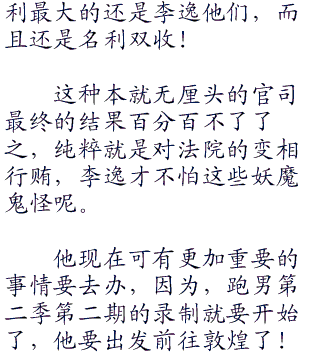 利最大的还是李逸他们，而
且还是名利双收！
这种本就无厘头的官司
最终的结果百分百不了了
之，纯粹就是对法院的变相
行贿，李逸才不怕这些妖魔
鬼怪呢。
他现在可有更加重要的
事情要去办，因为，跑男第
二季第二期的录制就要开始
了，他要出发前往敦煌了！